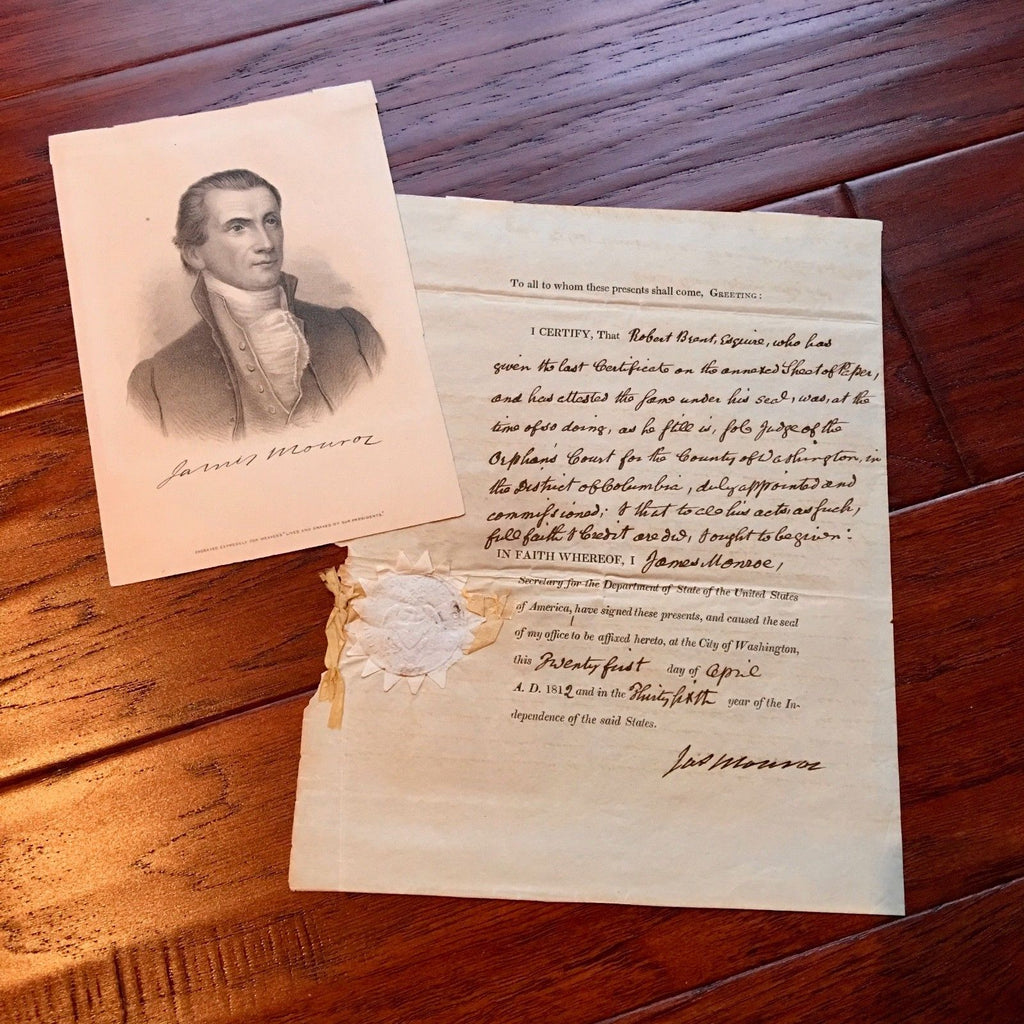 James Monroe
ENGRAVED EXPRESSLY FOR WEAVER'S "LIVES AND GRAVES OF OUR PRESIDENTS."
To all to whom these presents shall come, GREETING:
I CERTIFY, That Robert Brent, Esquire, who has
given the last Certificate on the annexed Sheet of Paper,
and has attested the same under his seal, was, at the
time of so doing, as he still is, sole Judge of the
Orphan's Court for the County of Washington, in
the District of Columbia, duly appointed and
commissioned; & that to all his acts, as such,
full faith & Credit are due, & ought to be given:
IN FAITH WHEREOF, I James Monroe,
Secretary for the Department of State of the United States
of America, have signed these presents, and caused the seal
of my office to be affixed hereto, at the City of Washington,
this Twenty first day of April
A. D. 1812 and in the Thirty sixth year of the In-
dependence of the said States.
Jas Monroe